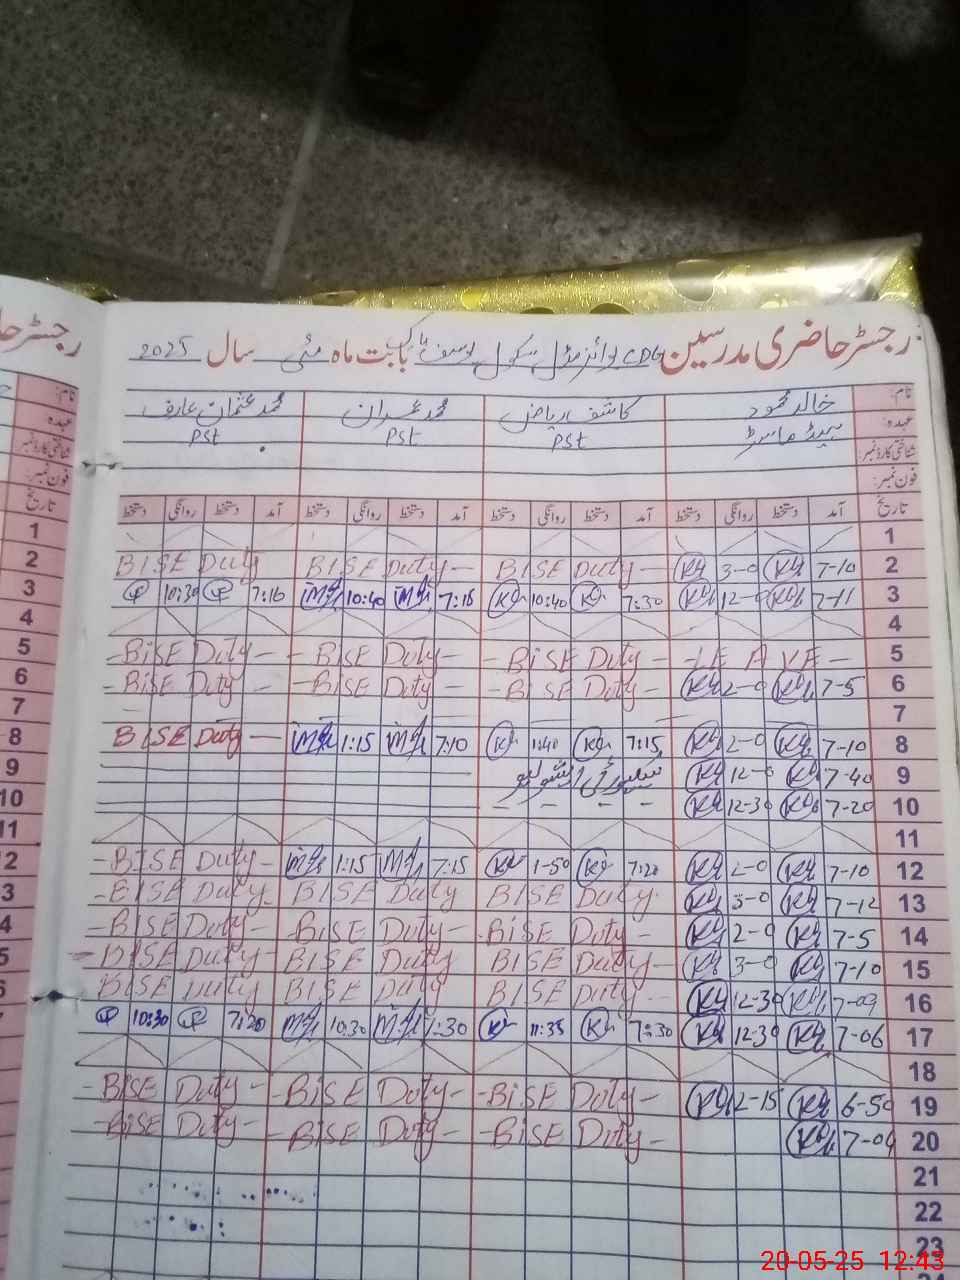 رجسٹر حاضری مدرسین CDG بوائز مڈل سکول یوسف پارک بابت ماہ مئی سال 2025
نام: خالد محمود کاشف ریاض محمد عمران محمد عثمان عارف
عہدہ: ہیڈ ماسٹر PST PST PST
شناختی کارڈ نمبر:
فون نمبر:
تاریخ آمد دستخط روانگی دستخط آمد دستخط روانگی دستخط آمد دستخط روانگی دستخط آمد دستخط روانگی دستخط
1
BISE Duty BISE Duty - BISE Duty - 3-0 7-10 2
10:30 7:16 10:40 7:16 10:40 7:30 12-0 7-11 3
4
- BISE Duty - - BISE Duty - - BISE Duty - - LEAVE - 5
- BISE Duty - - BISE Duty - - BISE Duty - 2-0 7-5 6
7
BISE Duty - 1:15 7:10 1:40 7:15 2-0 7-10 8
12-0 7-40 9
12-30 7-20 10
11
- BISE Duty - 1:15 7:15 1-50 7:20 2-0 7-10 12
- BISE Duty - BISE Duty BISE Duty - 3-0 7-12 13
- BISE Duty - - BISE Duty - - BISE Duty - 2-0 7-5 14
- BISE Duty - BISE Duty BISE Duty - 3-0 7-10 15
BISE Duty BISE Duty BISE Duty - 12-30 7-09 16
10:30 7:20 10:30 7:30 11:35 7:30 12-30 7-06 17
18
- BISE Duty - - BISE Duty - - BISE Duty - 2-15 6-50 19
- BISE Duty - - BISE Duty - - BISE Duty - 7-00 20
21
22
23
20-05-25 12:43